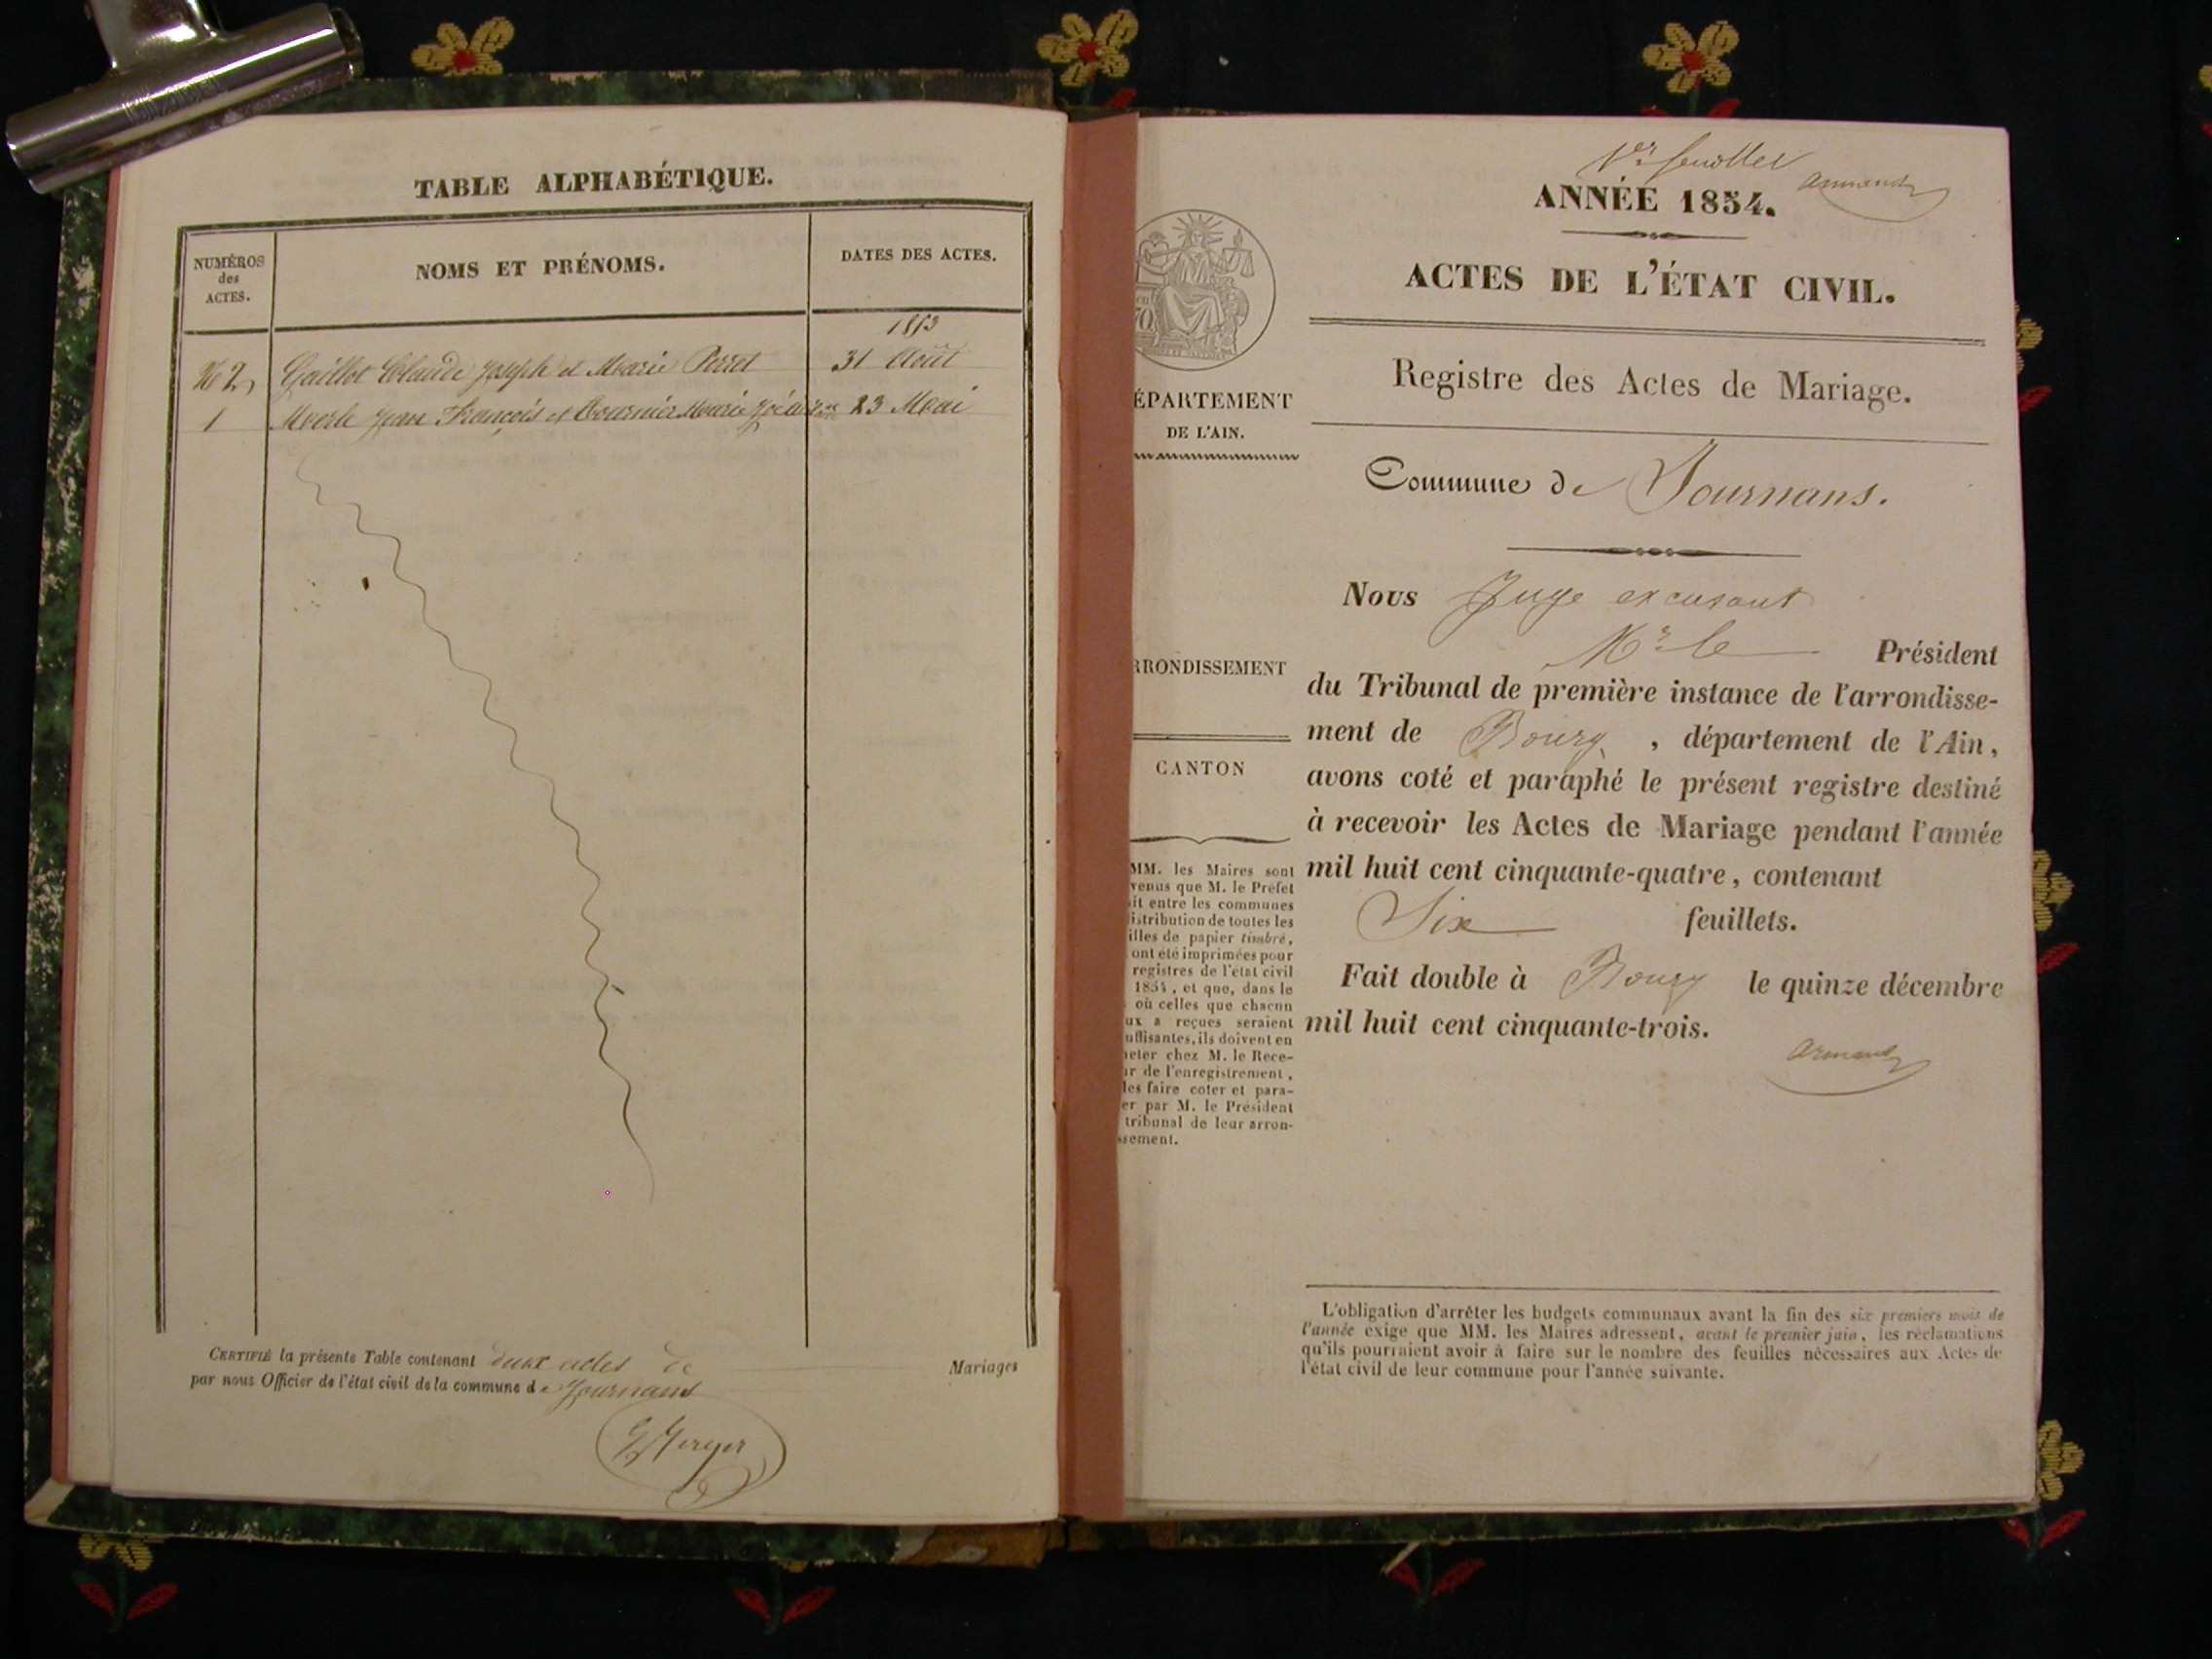 TABLE ALPHABÉTIQUE.
NUMÉROS
des
ACTES.
NOMS ET PRÉNOMS.
DATES DES ACTES.
1853
No 2, Gaillot Claude Joseph et Marie Perret 31 Août
1 Merle Jean François et Bournier Marie 23 Mai
CERTIFIÉ la présente Table contenant deux actes de Mariages
par nous Officier de l'état civil de la commune de Journans
1er feuillet
ANNÉE 1854.
Armand
ACTES DE L'ÉTAT CIVIL.
Registre des Actes de Mariage.
ÉPARTEMENT
DE L'AIN.
Commune de Journans.
Nous Juge excusant
Mr le Président
RRONDISSEMENT
du Tribunal de première instance de l'arrondisse-
ment de Bourg, département de l'Ain,
CANTON
avons coté et paraphé le présent registre destiné
à recevoir les Actes de Mariage pendant l'année
mil huit cent cinquante-quatre, contenant
Six feuillets.
Fait double à Bourg le quinze décembre
mil huit cent cinquante-trois.
Armand
MM. les Maires sont
venus que M. le Préfet
it entre les communes
istribution de toutes les
illes de papier timbré,
ont été imprimées pour
registres de l'état civil
1854, et que, dans le
où celles que chacun
ux a reçues seraient
uffisantes, ils doivent en
heter chez M. le Rece-
ur de l'enregistrement,
les faire coter et para-
er par M. le Président
tribunal de leur arron-
ssement.
L'obligation d'arrêter les budgets communaux avant la fin des six premiers mois de
l'année exige que MM. les Maires adressent, avant le premier juin, les réclamations
qu'ils pourraient avoir à faire sur le nombre des feuilles nécessaires aux Actes de
l'état civil de leur commune pour l'année suivante.